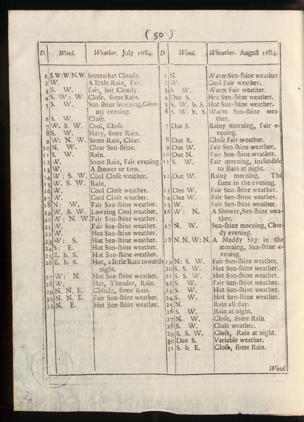 ( 50 )
D. Wind. Weather, July 1684. D Wind. Wheather. August 1684.
1 S.W:W.N.W. Somewhat Cloudy.
2 W. A little Rain, Fair.
3 S. W. Fair, but Cloudy.
4 S. W: W. Close, some Rain.
5 S. W. Sun-shine morning, Gloomy evening.
6 S. W. Close.
7 W. S. W. Cool, Close.
8 S. W. Hazy, some Rain.
9 W: N. W. Some Rain, Clear.
10 N. W. Clear Sun-shine.
11 S. W. Rain.
12 W. Some Rain, Fair evening.
13 W. A shower or two.
14 W: S. W. Cool Close weather.
15 W. S. W. Rain.
16 W. Cool Close weather.
17 W. Cool Close weather.
18 N: W. Fair Sun-shine weather.
19 W. S. W. Lowring Cool weather.
20 W: N. W. Fair Sun-shine weather.
21 W. Fair Sun-shine weather.
22 W. Hot Sun-shine weather.
23 W: S. Hot Sun-shine weather.
24 S: E. Hot Sun-shine weather.
25 E. b. S. Hot Sun-shine weather.
26 E. b. S. Hot, a little Rain towards
night.
27 W: N. Hot Sun-shine weather.
28 W. Hot, Thunder, Rain.
29 N. N. E. Cloudy, some Rain.
30 N. N. E. Fair Sun-shine weather.
31 N. E. Hot Sun-shine weather.
1 N. Warm Sun-shine weather
2 W. Cool Fair weather.
3 S. W. Warm Fair weather.
4 Due S. Hot Sun-shine weather.
5 S. W. b. S. Hot Sun-shine weather.
6 S. W. b. S. Warm Sun-shine weather.
7 Due S. Rainy morning, Fair evening.
8 Due S. Close Fair weather.
9 Due W. Fair Sun-shine weather.
10 Due N. Fair Sun-shine weather.
11 S. W. Fair morning, inclinable
to Rain at night.
12 Due W. Rainy morning. The
same in the evening.
13 Due W. Fair Sun-shine weather.
14 Due W. Fair Sun-shine weather.
15 W. Fair Sun-shine weather.
16 W: N. A Shower, Sun-shine weather.
17 N. W. Sun-shine morning, Cloudy evening.
18 N. N. W: N. A Muddy Sky in the
morning, Sun-shine evening.
19 N: S. W. Fair Sun-shine weather.
20 S. S. W. Hot Sun-shine weather.
21 S. S. W. Hot Sun-shine weather.
22 S. W. Hot Sun-shine weather.
23 S. W. Fair Sun-shine weather.
24 S. W. Hot Sun-shine weather.
25 N. Rain all day.
26 S. W. Rain at night.
27 N. W. Close, some Rain.
28 S. W. Close weather.
29 S. S. W. Close, Rain at night.
30 Due S. Variable weather.
31 S. b. E. Close, some Rain.
Wind.